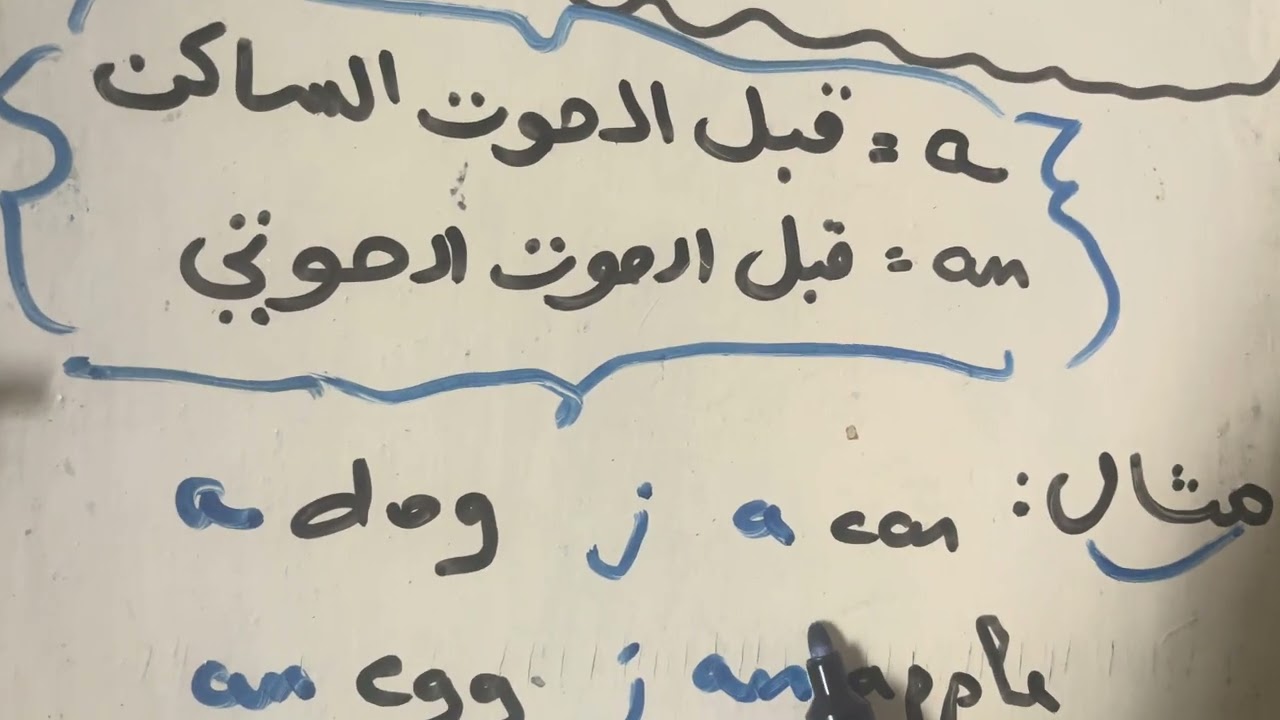 a = قبل الصوت الساكن
an = قبل الصوت الصوتي
مثال: a can ; a dog
an apple ; an egg